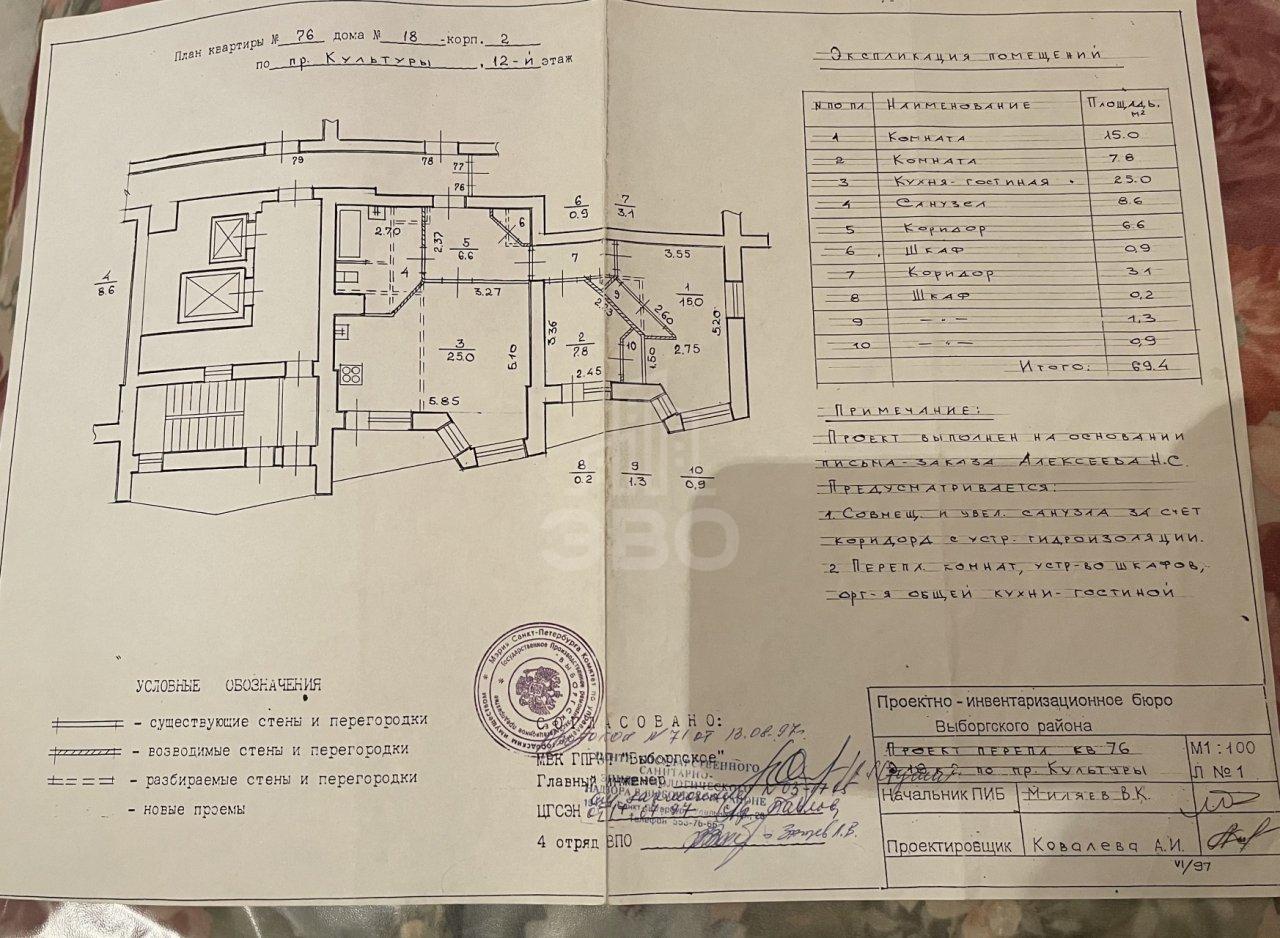 План квартиры № 76 дома № 18 -корп. 2
по пр. Культуры , 12-й этаж
79
78
77
76
6
0.9
7
3.1
2.70
2.37
5
6.6
6
7
3.55
4
8.6
4
3.27
1
15.0
9
2.60
5.20
3.36
2
7.8
10
1.50
2.75
3
25.0
5.10
2.45
5.85
8
0.2
9
1.3
10
0,9
ЭВО
Экспликация помещений
№ по пл. Наименование Площадь, м²
1 Комната 15.0
2 Комната 7.8
3 Кухня-гостиная 25.0
4 Санузел 8.6
5 Коридор 6.6
6 Шкаф 0,9
7 Коридор 3.1
8 Шкаф 0,2
9 —"— 1,3
10 —"— 0,9
Итого: 69.4
Примечание:
Проект выполнен на основании
письма-заказа Алексеева Н.С.
Предусматривается:
1. Совмещ. и увел. санузла за счет
коридора с устр. гидроизоляции.
2 Перепл. комнат, устр-во шкафов,
орг-я общей кухни-гостиной
УСЛОВНЫЕ ОБОЗНАЧЕНИЯ
- существующие стены и перегородки
- возводимые стены и перегородки
- разбираемые стены и перегородки
- новые проемы
Мэрия Санкт-Петербурга Комитет по управлению городским имуществом
СОГЛАСОВАНО:
Протокол № 71 от 13.08.97г.
МВК ГПРЭП "Выборгское"
Главный инженер
ЦГСЭН
4 отряд ВПО
Проектно-инвентаризационное бюро
Выборгского района
Проект перепл. кв 76
по пр. Культуры
М1:100
Л №1
Начальник ПИБ Миляев В.К.
Проектировщик Ковалева А.И.
VI/97